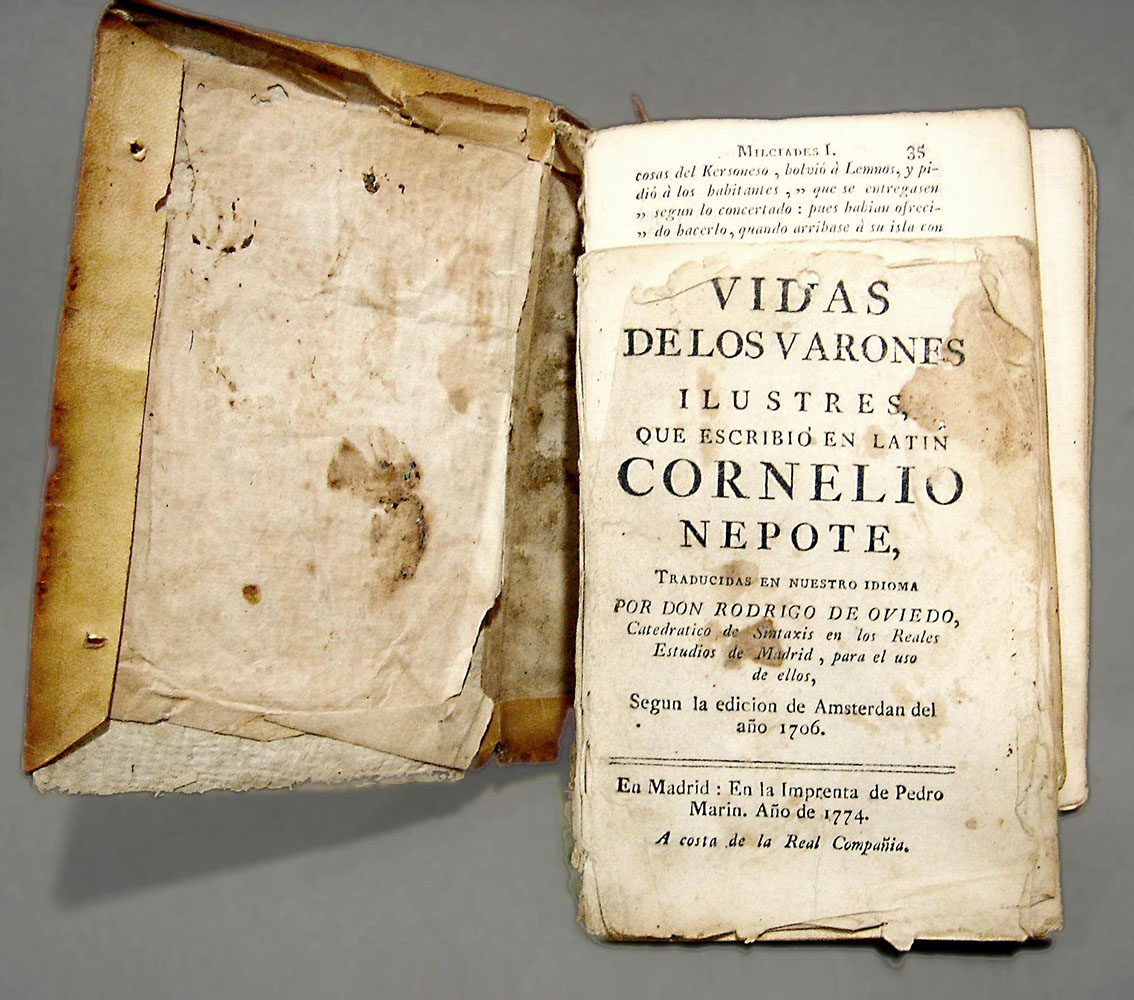 MILCIADES I. 35
cosas del Kersoneso, bolvió à Lemnos, y pi-
dió à los habitantes, „ que se entregasen
„ segun lo concertado: pues habian ofreci-
„ do hacerlo, quando arribase à su isla con
VIDAS
DE LOS VARONES
ILUSTRES,
QUE ESCRIBIÓ EN LATIN
CORNELIO
NEPOTE,
TRADUCIDAS EN NUESTRO IDIOMA
POR DON RODRIGO DE OVIEDO,
Catedratico de Sintaxis en los Reales
Estudios de Madrid, para el uso
de ellos,
Segun la edicion de Amsterdan del
año 1706.
En Madrid: En la Imprenta de Pedro
Marin. Año de 1774.
A costa de la Real Compañia.